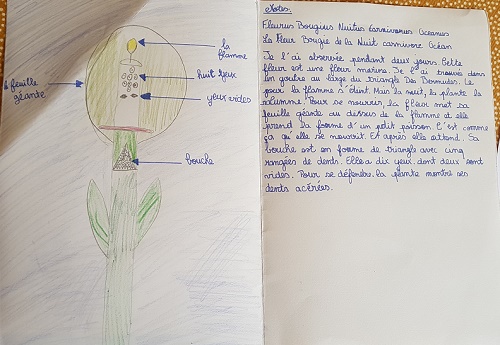 la
flamme
huit yeux
feuille
géante
yeux vides
bouche
Notes.
Fleurus Bougius Nuitus Carnivorus Oceanus
La Fleur Bougie de la Nuit carnivore Océan
Je l'ai observée pendant deux jours. Cette
fleur est une fleur marine. Je l'ai trouvée dans
un gouffre au large du triangle Des Bermudes. Le
jour la flamme s'éteint. Mais la nuit, la plante la
rallume. Pour se nourrir la fleur met sa
feuille géante au dessus de la flamme et elle
prend la forme d'un petit poisson. C'est comme
ça qu'elle se nourrit. Et après elle attend. Sa
bouche est en forme de triangle avec cinq
rangées de dents. Elle a dix yeux dont deux sont
vides. Pour se défendre la plante montre ses
dents acérées.